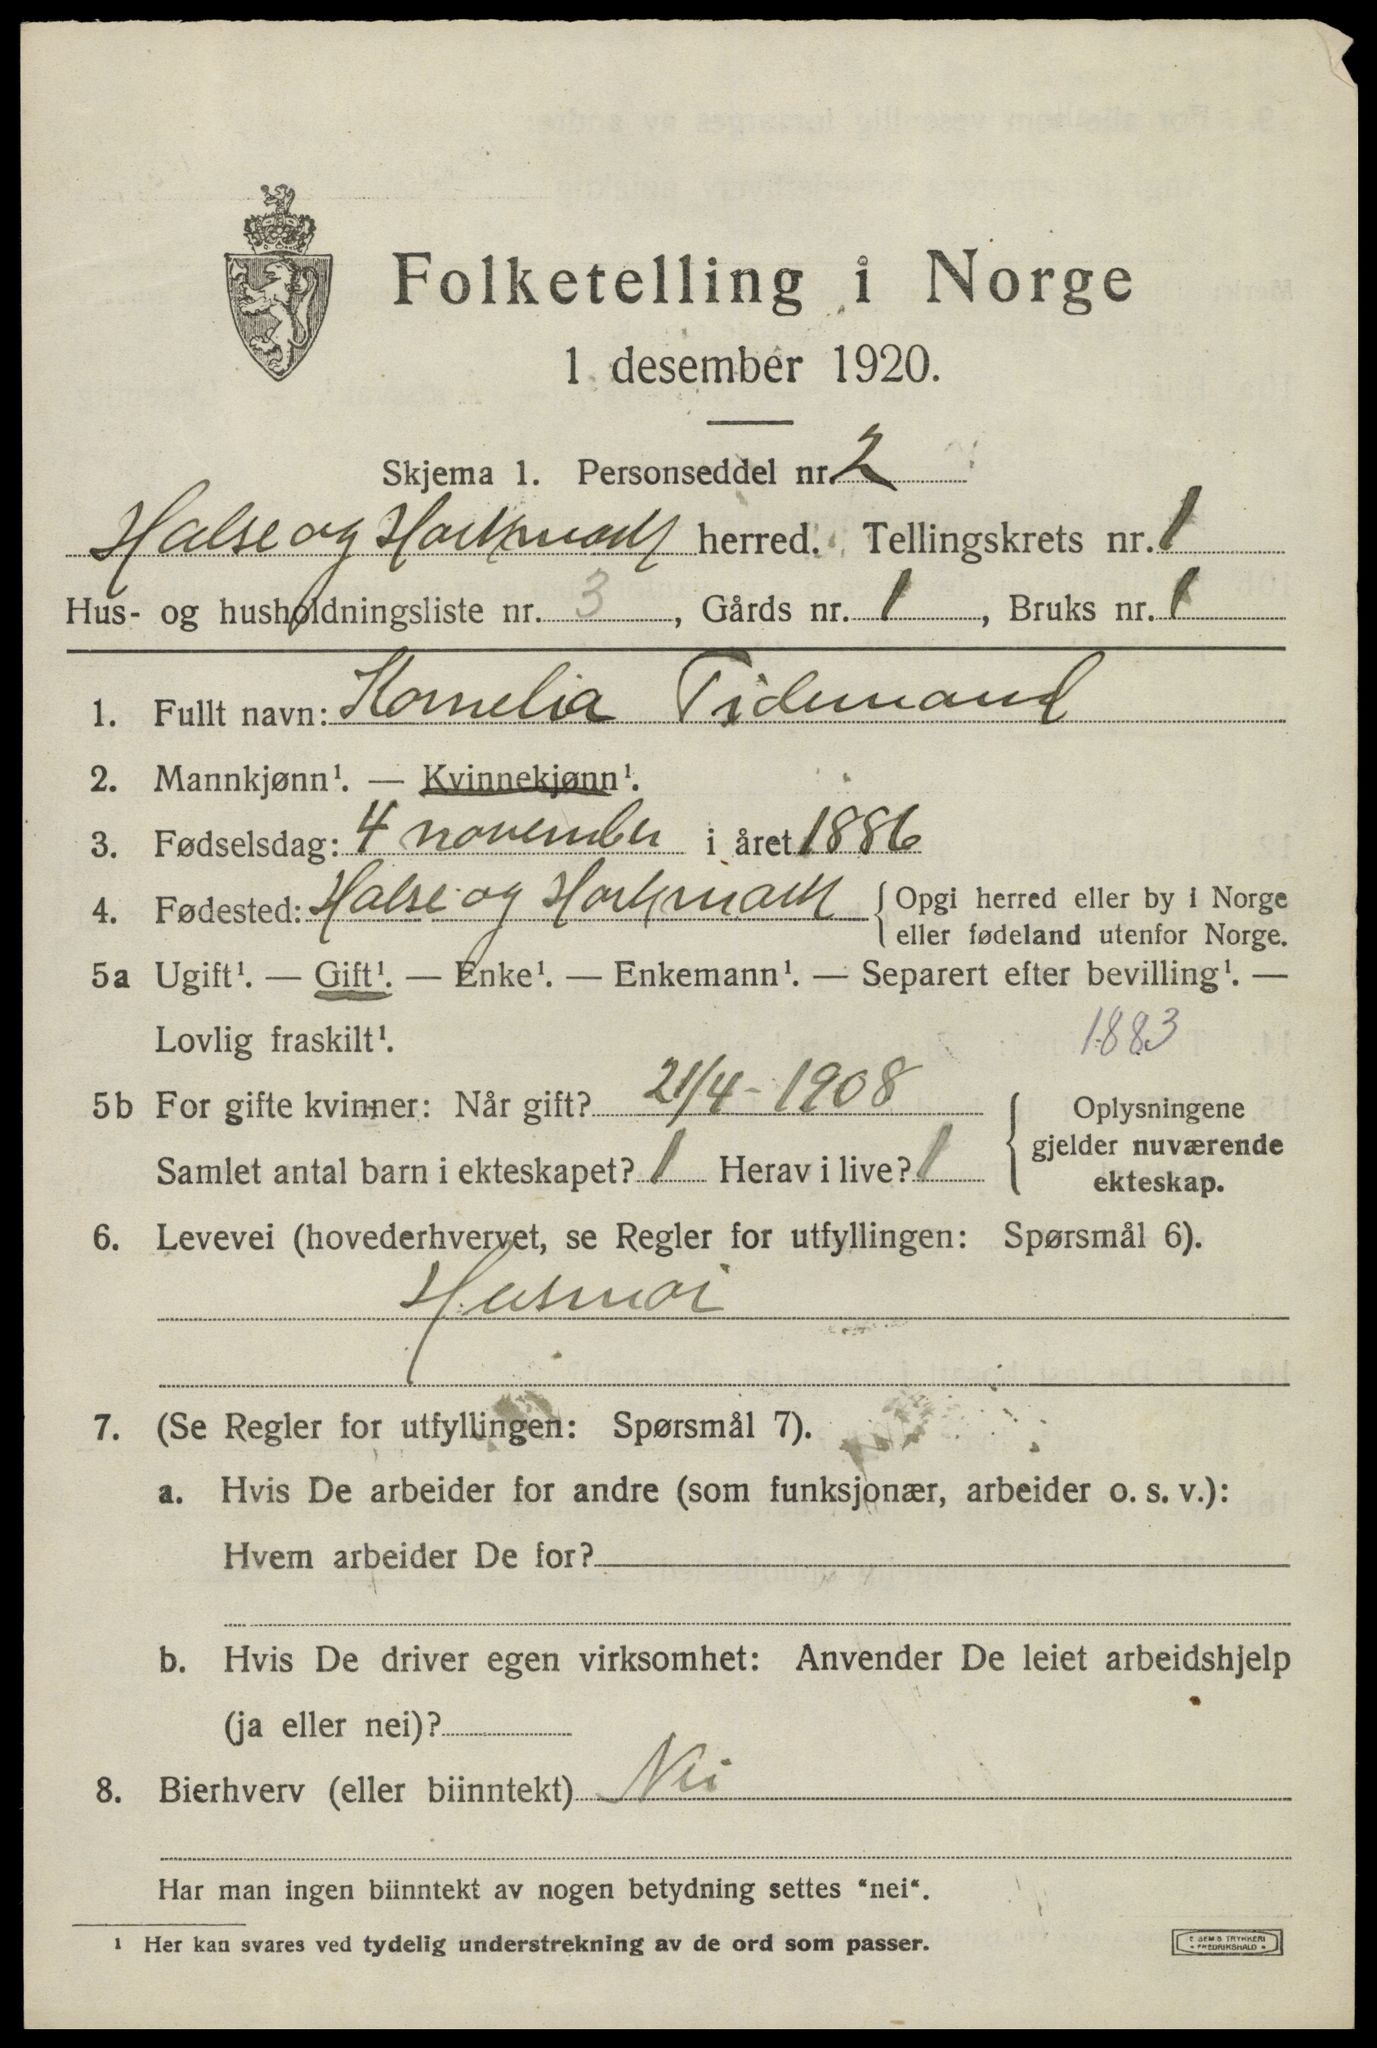 Folketelling i Norge
1 desember 1920.
Skjema 1. Personseddel nr. 2
Halse og Harkmark herred. Tellingskrets nr. 1
Hus- og husholdningsliste nr. 3, Gårds nr. 1, Bruks nr. 1
1. Fullt navn: Kornelia Tidemand
2. Mannkjønn¹. — Kvinnekjønn¹.
3. Fødselsdag: 4 november i året 1886
4. Fødested: Halse og Harkmark { Opgi herred eller by i Norge
eller fødeland utenfor Norge.
5a Ugift¹. — Gift¹. — Enke¹. — Enkemann¹. — Separert efter bevilling¹. —
Lovlig fraskilt¹. 1883
5b For gifte kvinner: Når gift? 21/4 - 1908
Samlet antal barn i ekteskapet? 1 Herav i live? 1
{ Oplysningene
gjelder nuværende
ekteskap.
6. Levevei (hovederhvervet, se Regler for utfyllingen: Spørsmål 6).
Husmor
7. (Se Regler for utfyllingen: Spørsmål 7).
a. Hvis De arbeider for andre (som funksjonær, arbeider o. s. v.):
Hvem arbeider De for?
b. Hvis De driver egen virksomhet: Anvender De leiet arbeidshjelp
(ja eller nei)?
8. Bierhverv (eller biinntekt) Nei
Har man ingen biinntekt av nogen betydning settes "nei".
¹ Her kan svares ved tydelig understrekning av de ord som passer.
E SEMS TRYKKERI
• FREDRIKSHALD •